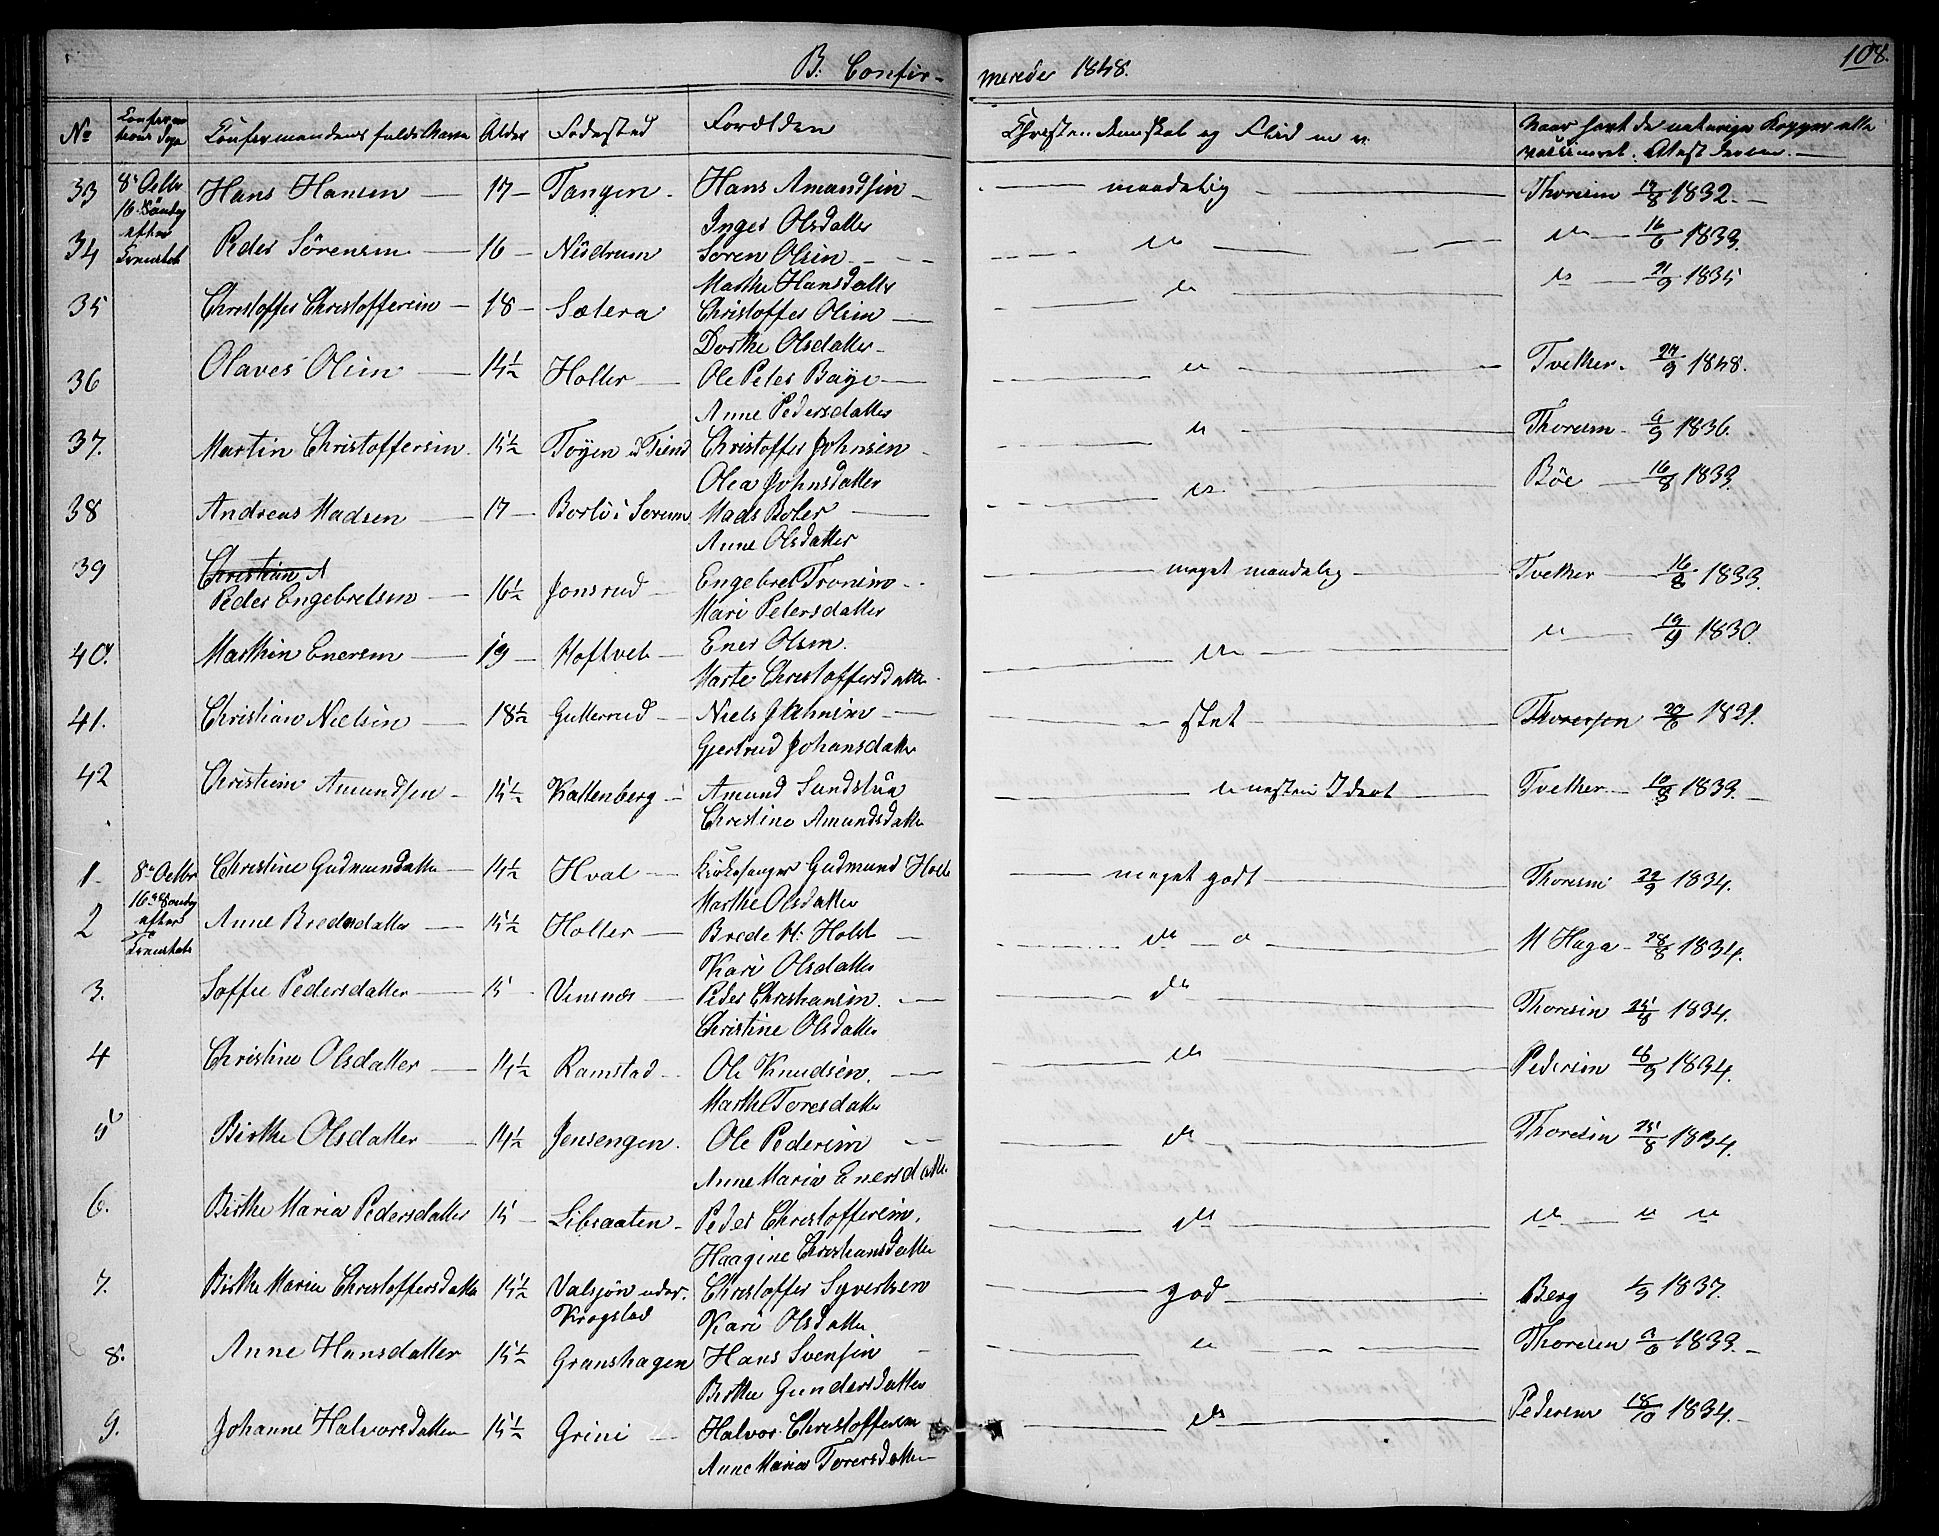 B. Confir-merede 1848. 108.
No Confirmationens Dage Confirmandens fulde Navn Alder Fødested Forældre Christendomskab og Flid Naar havt de naturlige Kopper eller vaccineret.
33 8 Octbr 16 Søndag efter Trinitatis Hans Hansen 17 Tangen Hans Amundsen Inger Olsdatter maadelig Thoresen 19/8 1832.
34 Peder Sörensen 16 Nödrum Soren Olsen Marthe Hansdatter " " 16/6 1833.
35 Christoffer Christoffersen 18 Sætera Christoffer Olsen Dorthe Olsdatter " " 21/9 1835
36 Olaves Olsen 14½ Holter Ole Peter Baye Anne Pedersdatter " Tvether 27/9 1848.
37. Martin Christoffersen 15½ Toyen i Fiend Christoffer Johnsen Olea Johnsdatter " Thoresen 6/9 1836.
38 Andreas Madsen 17 Borli i Sorum Mads Boler Anne Olsdatter " Böe 16/8 1833.
39 Christian A Peder Engebretsen 16½ Jonsrud Engebret Tronsen Mari Petersdatter meget maadelig Tvether 16/8 1833.
40. Mathin Enersen 19 Hoftvet Ener Olsen. Marte Christoffersdatter " " 19/9 1830.
41. Christian Nielsen 18½ Gutterud Niels Johnsen Gjertrud Johansdatter slet Thoresen 29/6 1831.
42 Christian Amundsen 15½ Kattenberg Amund Sandstua Christine Amundsdatter " næsten Idiot Tvether 10/8 1833.
1 8de Octbr 16de Søndag efter Trinitatis Christine Gudmundsdatter 14½ Hval Kirkesanger Gudmund Holte Marthe Olsdatter meget godt Thoresen 22/9 1834.
2 Anne Bredesdatter 15½ Holter Brede H. Holst Kari Olsdatter do o M Haga 28/8 1834.
3. Soffie Pedersdatter 15 Vensnæs Peder Christiansen. Christine Olsdatter do Thoresen 25/8 1834.
4 Christine Olsdatter 14½ Ramstad Ole Knudsen. Marthe Toresdatter do Pedersen 26/9 1834.
5 Birthe Olsdatter 14½ Jensengen. Ole Pedersen Anne Maria Enersdatter do Thoresen 25/8 1834.
6. Birthe Maria Pedersdatter 15 Libraaten Peder Christoffersen. Haagine Christiansdatter do " " "
7. Birthe Marie Christoffersdatter 15½ Valsjøn under Krogstad Christoffer Syvertsen Kari Olsdatter god Berg 1/9 1837.
8. Anne Hansdatter 15½ Granshagen Hans Svensen Birthe Gundersdatter " Thoresen 1833.
9. Johanne Halvorsdatter 15½ Grini Halvor Christoffersen Anne Maria Torersdatter do Pedersen 18/10 1834.